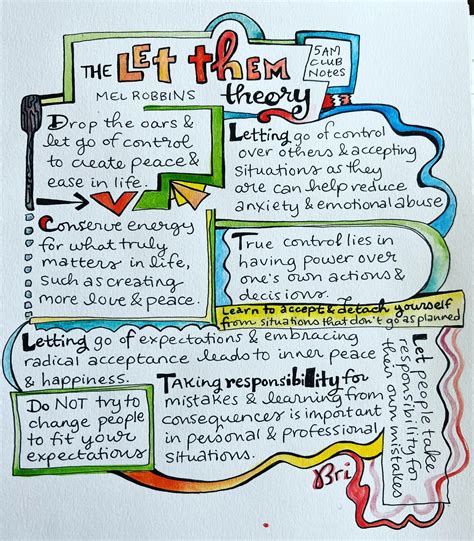 THE LET THEM
theory
MEL ROBBINS
5AM
CLUB
NOTES
Drop the oars &
let go of control
to create peace &
ease in life.
Letting go of control
over others & accepting
situations as they
are can help reduce
anxiety & emotional abuse
Conserve energy
for what truly
matters in life,
such as creating
more love & peace.
True control lies in
having power over
one's own actions &
decisions.
Learn to accept & detach yourself
from situations that don't go as planned
Letting go of expectations & embracing
radical acceptance leads to inner peace
& happiness.
Do NOT try to
change people
to fit your
expectations
Taking responsibility for
mistakes & learning from
consequences is important
in personal & professional
situations.
Let people take
responsibility for
their own mistakes
Bri